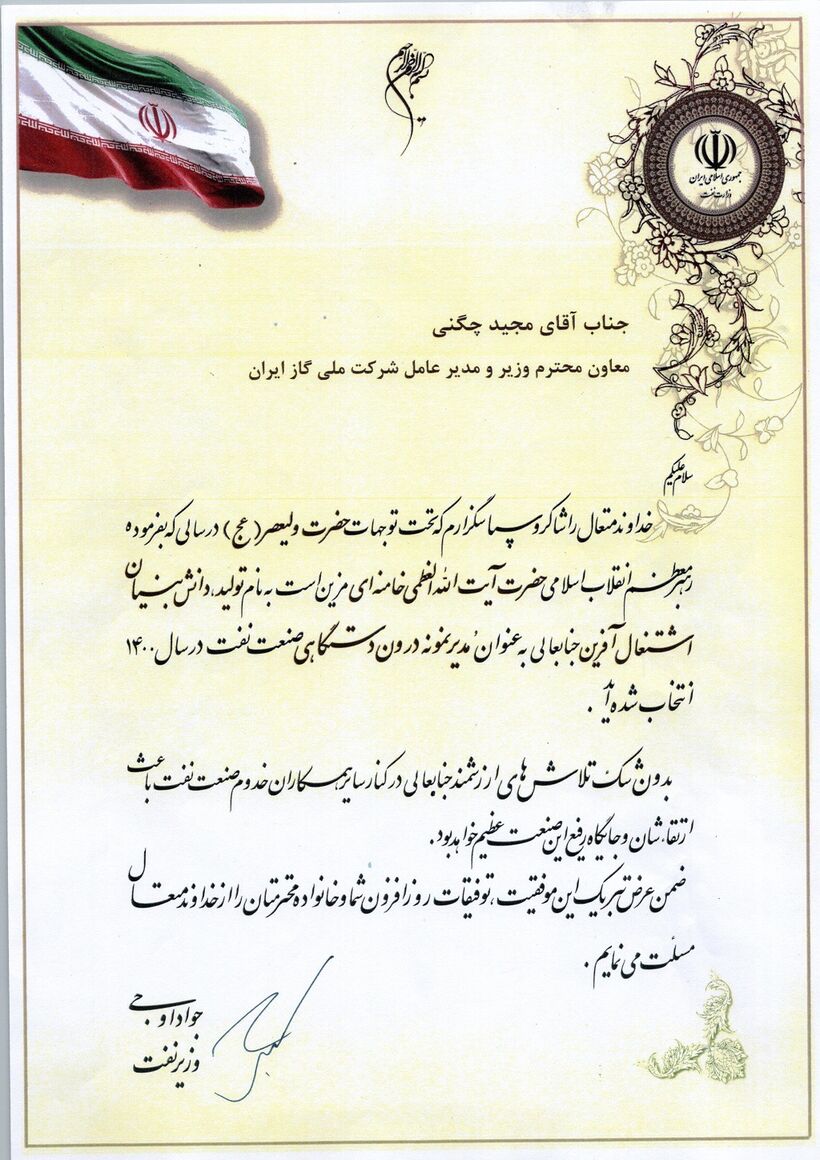 بسم الله الرحمن الرحیم
جمهوری اسلامی ایران
وزارت نفت
جناب آقای مجید چگنی
معاون محترم وزیر و مدیر عامل شرکت ملی گاز ایران
سلام علیکم
خداوند متعال را شاکر و سپاسگزارم که تحت توجهات حضرت ولیعصر (عج) در سالی که بفرموده
رهبر معظم انقلاب اسلامی حضرت آیت الله العظمی خامنه ای مزین است به نام تولید، دانش بنیان
اشتغال آفرین جنابعالی به عنوان مدیر نمونه درون دستگاهی صنعت نفت در سال ۱۴۰۰
انتخاب شده اید .
بدون شک تلاش های ارزشمند جنابعالی در کنار سایر همکاران خدوم صنعت نفت باعث
ارتقاء شان و جایگاه رفیع این صنعت عظیم خواهد بود .
ضمن عرض تبریک این موفقیت ، توفیقات روزافزون شما و خانواده محترمتان را از خداوند متعال
مسئلت می نمایم .
جواد اوجی
وزیر نفت